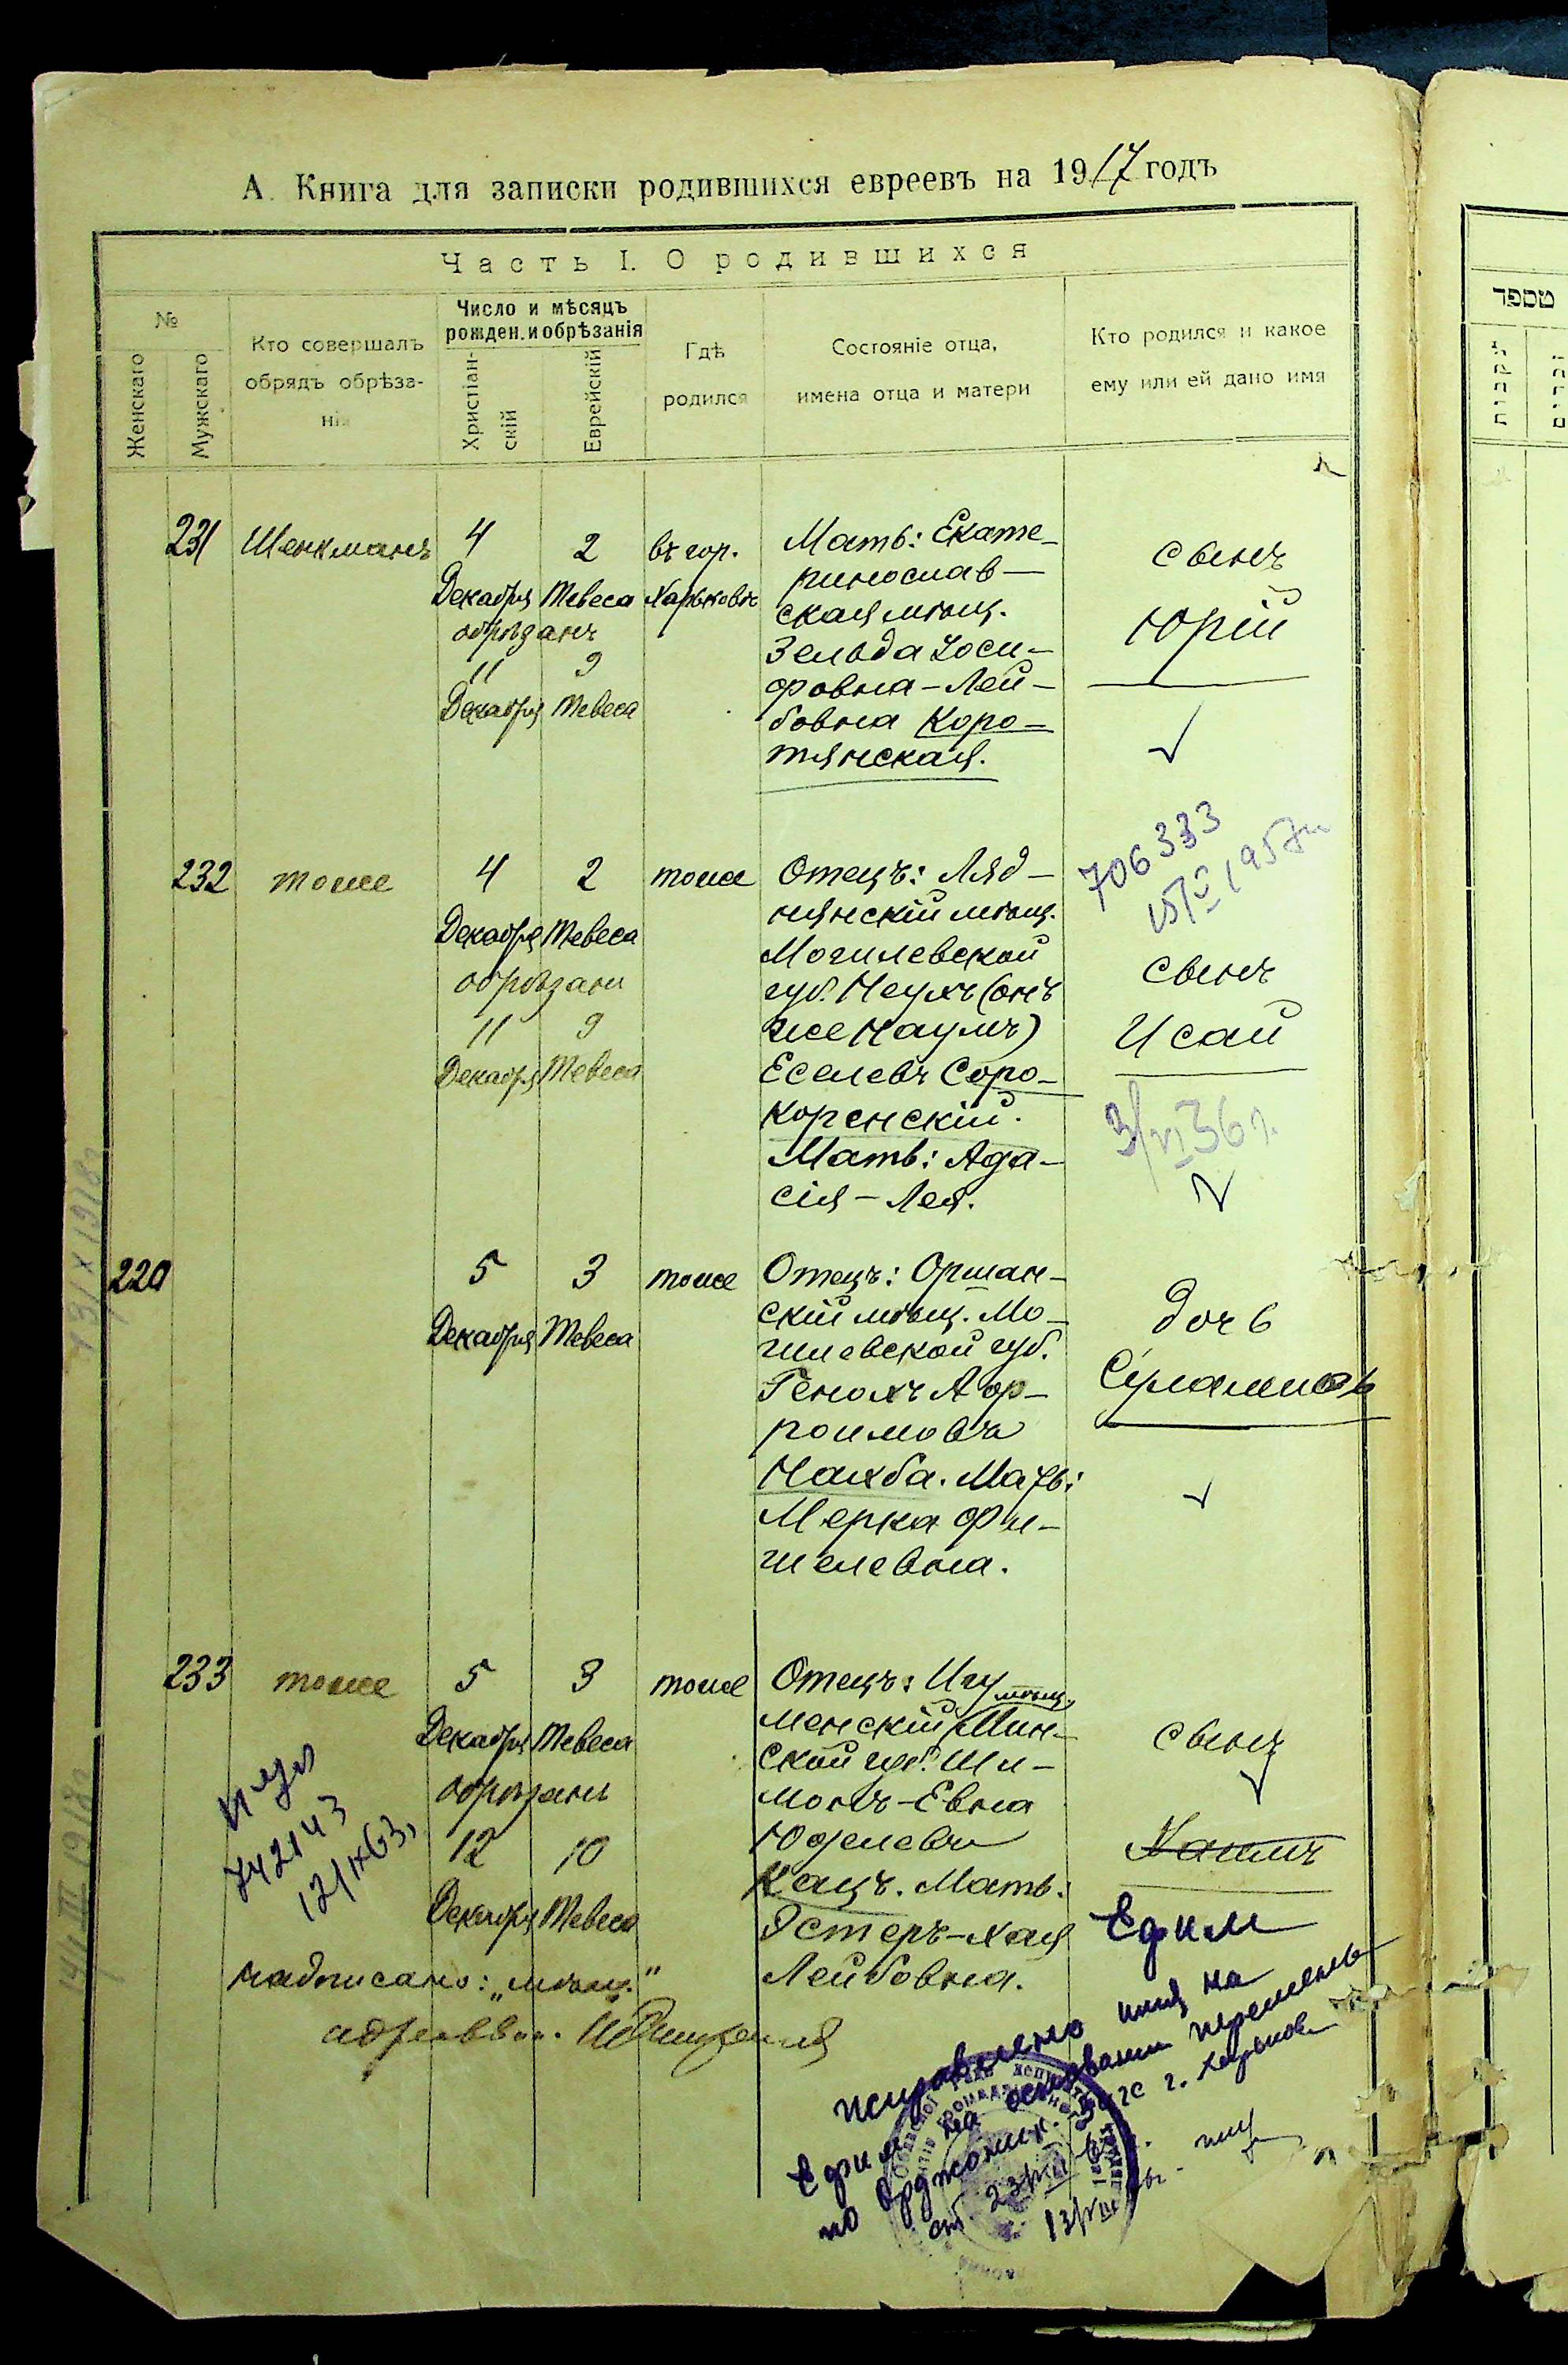 А. Книга для записки родившихся евреевъ на 1917 годъ
Часть I. О родившихся
№
Женскаго
Мужскаго
Кто совершалъ
обрядъ обрѣза-
нія
Число и мѣсяцъ
рожден. и обрѣзанія
Христіан-
скій
Еврейскій
Гдѣ
родился
Состояніе отца,
имена отца и матери
Кто родился и какое
ему или ей дано имя
231
Шенкманъ
4
Декабря
обрѣзанъ
11
Декабря
2
Тевеса
9
Тевеса
въ гор.
Харьковѣ
Мать: Екате-
ринослав-
ская мѣщ.
Зельда Іоси-
фовна-Лей-
бовна Коро-
тянская.
сынъ
Юрій
232
тоже
4
Декабря
обрѣзанъ
11
Декабря
2
Тевеса
9
Тевеса
тоже
Отецъ: Ляд-
нянскій мѣщ.
Могилевской
губ. Неухъ (онъ
же Наумъ)
Еселевъ Соро-
коренскій.
Мать: Ада-
сія-Лея.
706333
15/V 1957г
сынъ
Исай
3/VI 36 г.
220
5
Декабря
3
Тевеса
тоже
Отецъ: Оршан-
скій мѣщ. Мо-
гилевской губ.
Генохъ Аф-
роимовъ
Нахба. Мать:
Мерка Фи-
шелевна.
дочь
Суламифь
233
тоже
5
Декабря
обрѣзанъ
12
Декабря
3
Тевеса
10
Тевеса
тоже
Отецъ: Игу
мѣщ.
менскій Мин-
ской губ. Ши-
монъ-Евна
Юделевъ
Кацъ. Мать:
Эстеръ-Хая
Лейбовна.
сынъ
Хаимъ
Ефим
742143
надписано: „мѣщ."
исправлено имя на
Ефим на основании перемены
по Орджоник. загс г. Харькова
טספר